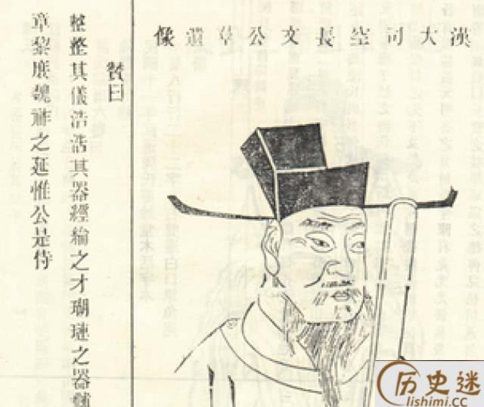 漢大司空長文公羣遺像
賛曰
整整其儀浩浩其器經綸之才瑚璉之器
章黎庶魏祚之延惟公是恃
历史迷
lishimi.cc